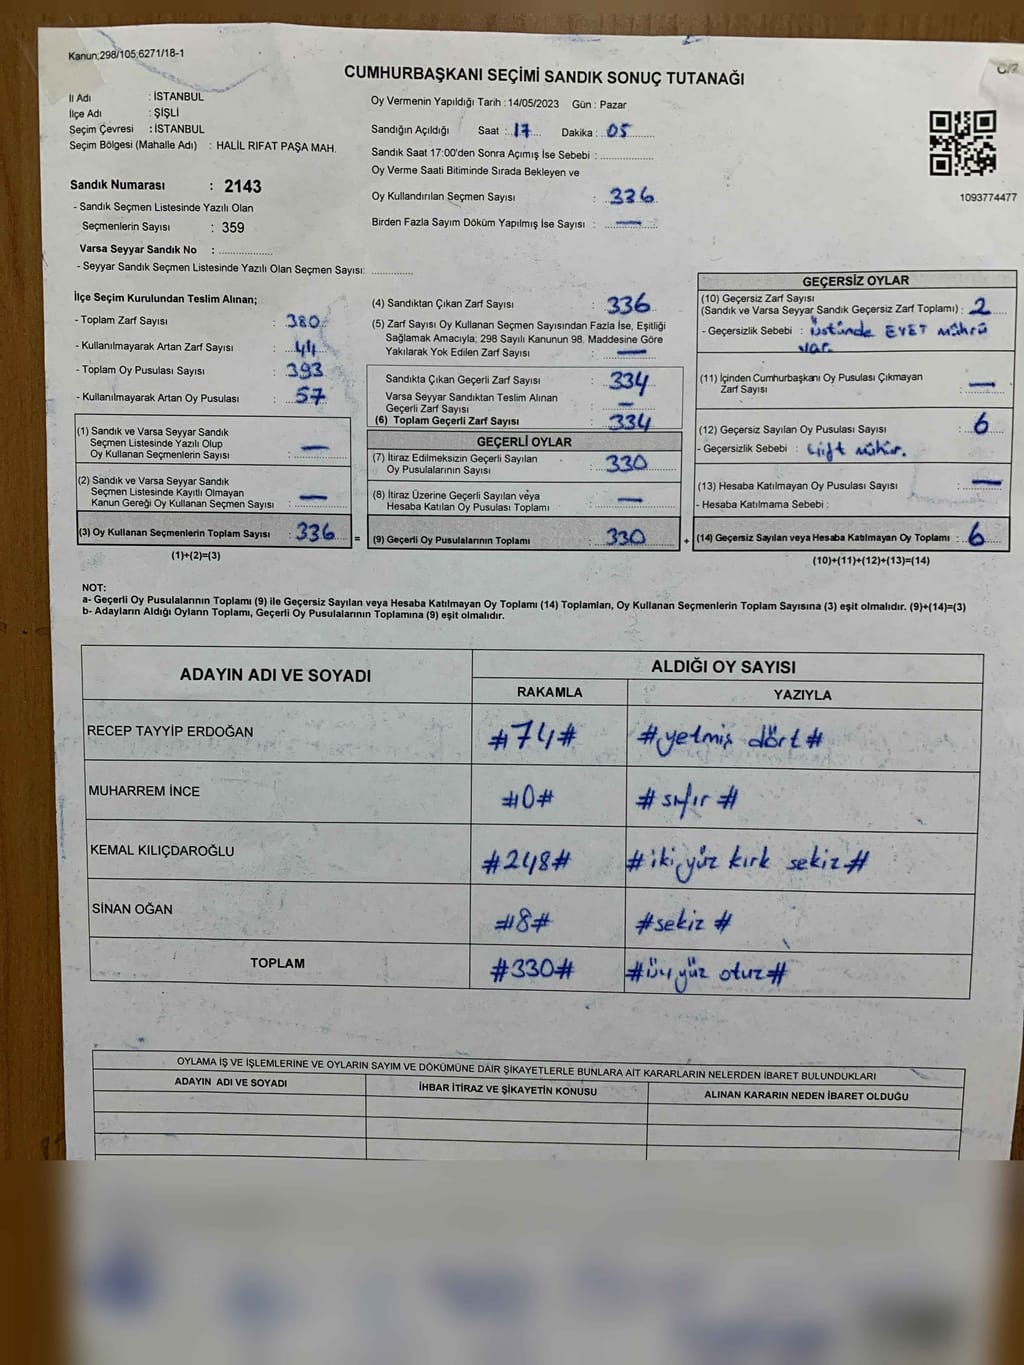 Kanun;298/105;6271/18-1
CUMHURBAŞKANI SEÇİMİ SANDIK SONUÇ TUTANAĞI
İl Adı : İSTANBUL
İlçe Adı : ŞİŞLİ
Seçim Çevresi : İSTANBUL
Seçim Bölgesi (Mahalle Adı) : HALİL RIFAT PAŞA MAH.
Sandık Numarası : 2143
- Sandık Seçmen Listesinde Yazılı Olan
Seçmenlerin Sayısı : 359
Varsa Seyyar Sandık No :
- Seyyar Sandık Seçmen Listesinde Yazılı Olan Seçmen Sayısı:
Oy Vermenin Yapıldığı Tarih : 14/05/2023 Gün : Pazar
Sandığın Açıldığı Saat : 17 Dakika : 05
Sandık Saat 17:00'den Sonra Açımış İse Sebebi :
Oy Verme Saati Bitiminde Sırada Bekleyen ve
Oy Kullandırılan Seçmen Sayısı : 336
Birden Fazla Sayım Döküm Yapılmış İse Sayısı : —
1093774477
İlçe Seçim Kurulundan Teslim Alınan;
- Toplam Zarf Sayısı : 380
- Kullanılmayarak Artan Zarf Sayısı : 44
- Toplam Oy Pusulası Sayısı : 393
- Kullanılmayarak Artan Oy Pusulası : 57
(1) Sandık ve Varsa Seyyar Sandık
Seçmen Listesinde Yazılı Olup
Oy Kullanan Seçmenlerin Sayısı : —
(2) Sandık ve Varsa Seyyar Sandık
Seçmen Listesinde Kayıtlı Olmayan
Kanun Gereği Oy Kullanan Seçmen Sayısı : —
(3) Oy Kullanan Seçmenlerin Toplam Sayısı : 336 =
(1)+(2)=(3)
(4) Sandıktan Çıkan Zarf Sayısı : 336
(5) Zarf Sayısı Oy Kullanan Seçmen Sayısından Fazla İse, Eşitliği
Sağlamak Amacıyla; 298 Sayılı Kanunun 98. Maddesine Göre
Yakılarak Yok Edilen Zarf Sayısı : —
Sandıkta Çıkan Geçerli Zarf Sayısı : 334
Varsa Seyyar Sandıktan Teslim Alınan
Geçerli Zarf Sayısı : —
(6) Toplam Geçerli Zarf Sayısı : 334
GEÇERLİ OYLAR
(7) İtiraz Edilmeksizin Geçerli Sayılan
Oy Pusulalarının Sayısı : 330
(8) İtiraz Üzerine Geçerli Sayılan veya
Hesaba Katılan Oy Pusulası Toplamı : —
(9) Geçerli Oy Pusulalarının Toplamı 330 +
GEÇERSİZ OYLAR
(10) Geçersiz Zarf Sayısı
(Sandık ve Varsa Seyyar Sandık Geçersiz Zarf Toplamı) : 2
- Geçersizlik Sebebi : Üstünde EVET mührü
var.
(11) İçinden Cumhurbaşkanı Oy Pusulası Çıkmayan
Zarf Sayısı : —
(12) Geçersiz Sayılan Oy Pusulası Sayısı : 6
- Geçersizlik Sebebi : Çift mühür.
(13) Hesaba Katılmayan Oy Pusulası Sayısı : —
- Hesaba Katılmama Sebebi :
(14) Geçersiz Sayılan veya Hesaba Katılmayan Oy Toplamı : 6
(10)+(11)+(12)+(13)=(14)
NOT:
a- Geçerli Oy Pusulalarının Toplamı (9) ile Geçersiz Sayılan veya Hesaba Katılmayan Oy Toplamı (14) Toplamları, Oy Kullanan Seçmenlerin Toplam Sayısına (3) eşit olmalıdır. (9)+(14)=(3)
b- Adayların Aldığı Oyların Toplamı, Geçerli Oy Pusulalarının Toplamına (9) eşit olmalıdır.
ADAYIN ADI VE SOYADI ALDIĞI OY SAYISI
RAKAMLA YAZIYLA
RECEP TAYYİP ERDOĞAN #74# #yetmiş dört#
MUHARREM İNCE #0# #sıfır#
KEMAL KILIÇDAROĞLU #248# #iki yüz kırk sekiz#
SİNAN OĞAN #8# #sekiz#
TOPLAM #330# #üç yüz otuz#
OYLAMA İŞ VE İŞLEMLERİNE VE OYLARIN SAYIM VE DÖKÜMÜNE DAİR ŞİKAYETLERLE BUNLARA AİT KARARLARIN NELERDEN İBARET BULUNDUKLARI
ADAYIN ADI VE SOYADI İHBAR İTİRAZ VE ŞİKAYETİN KONUSU ALINAN KARARIN NEDEN İBARET OLDUĞU